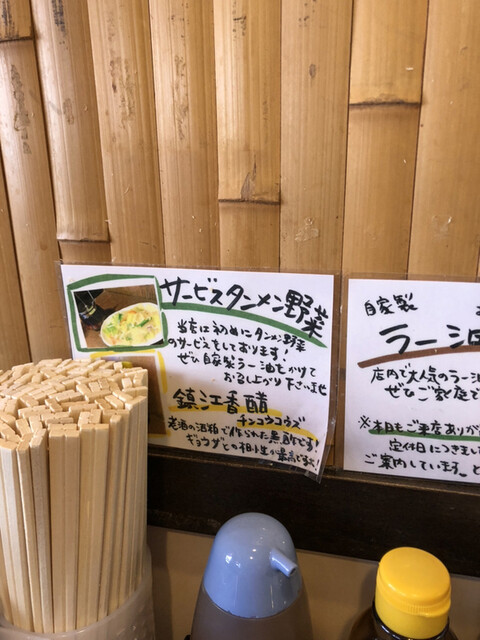 サービスタンメン野菜
当店はうめにタンメン野菜
のサービスをしております!
ぜひ自家製ラー油とかけて
お召し上がり下さいませ
鎮江香醋
チンコウコウズ
老酒の酒粕で作られた黒酢です!
ギョウザとの相性が最高です!
自家製
ラー油
店内で大気のラー油
ぜひご家庭で
※本日もご来店ありが
定休日につきまし
ご案内しています。と